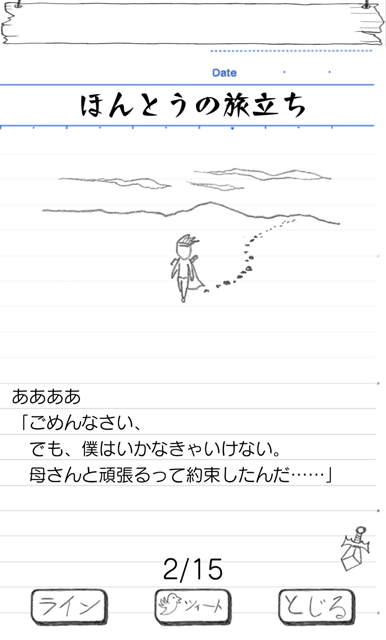 Date
ほんとうの旅立ち
ああああ
「ごめんなさい、
でも、僕はいかなきゃいけない。
母さんと頑張るって約束したんだ……」
2/15
ライン
ツイート
とじる